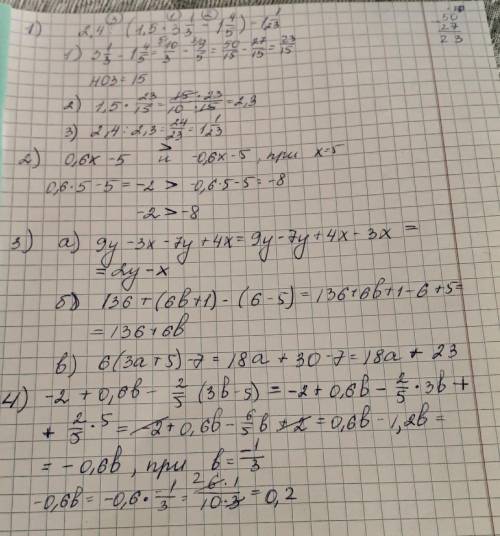 1) 2,4 : (1,5 · (3 1/3 - 1 4/5)) = 1 1/23
1) 3 1/3 - 1 4/5 = 10/3 - 9/5 = 50/15 - 27/15 = 23/15
НОЗ = 15
50
27
23
2) 1,5 · 23/15 = 15 · 23/10 · 15 = 2,3
3) 2,4 : 2,3 = 24/23 = 1 1/23
2) 0,6x - 5 > и -0,6x - 5, при x=5
0,6 · 5 - 5 = -2 > -0,6 · 5 - 5 = -8
-2 > -8
3) а) 9y - 3x - 7y + 4x = 9y - 7y + 4x - 3x =
= 2y - x
б) 136 + (6b+1) - (6-5) = 136 + 6b + 1 - 6 + 5 =
= 136 + 6b
в) 6(3a+5) - 7 = 18a + 30 - 7 = 18a + 23
4) -2 + 0,6b - 2/5 (3b-5) = -2 + 0,6b - 2/5 · 3b +
+ 2/5 · 5 = -2 + 0,6b - 6/5 b + 2 = 0,6b - 1,2b =
= -0,6b, при b = -1/3
-0,6b = -0,6 · -1/3 = 6 · 1/10 · 3 = 0,2